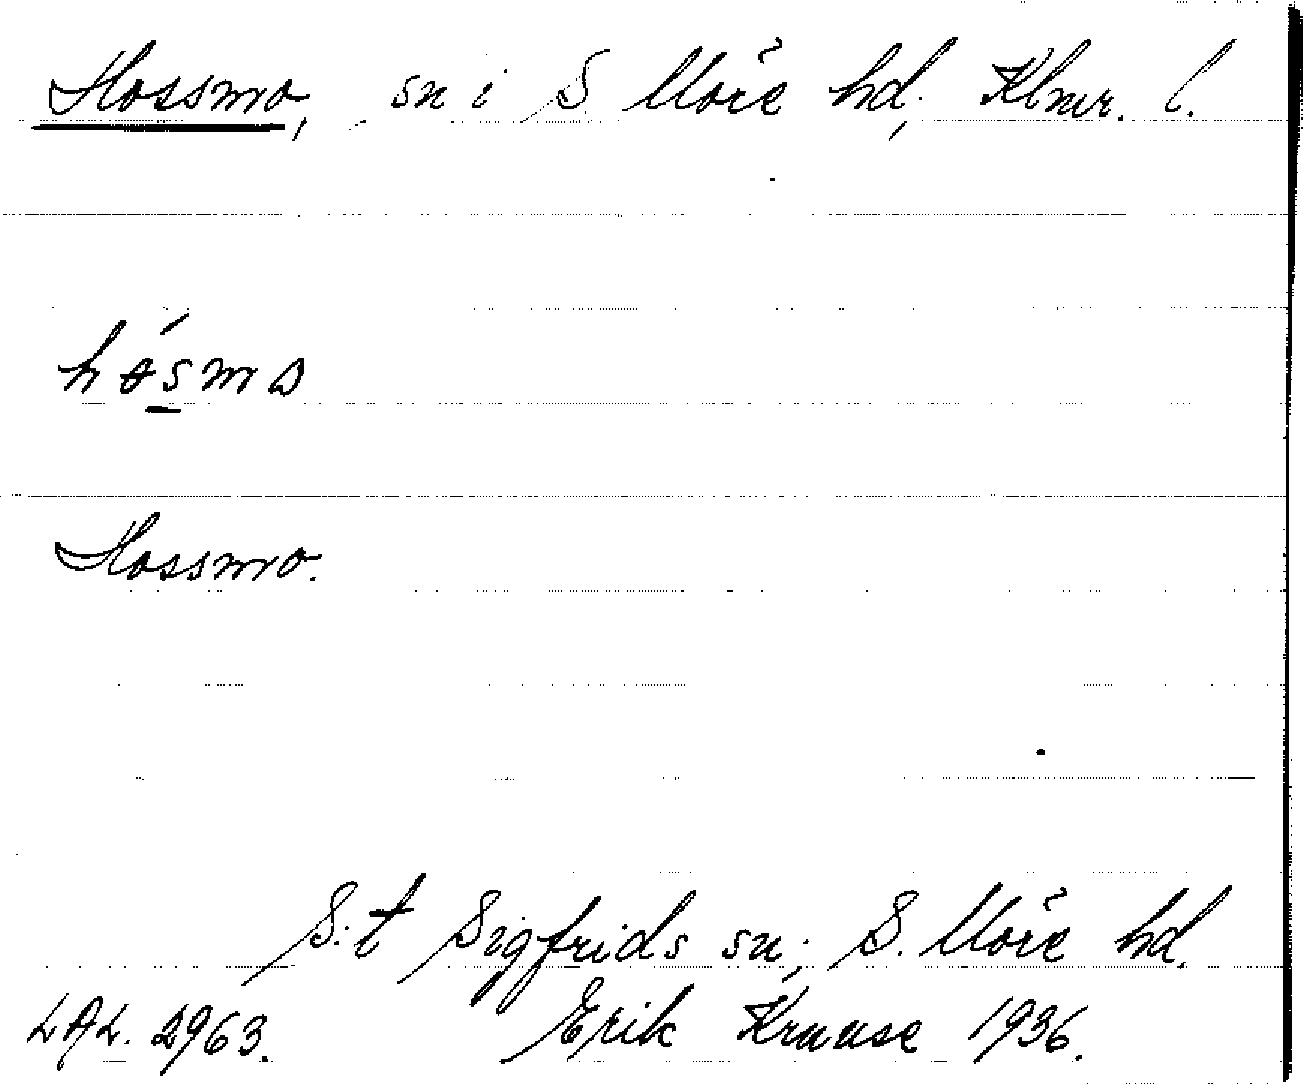 Hossmo, sn i S Möre hd, Klmr. l.
Hossmo.
S:t Sigfrids sn, S. Möre hd.
LAL. 2963. Erik Krause 1936.